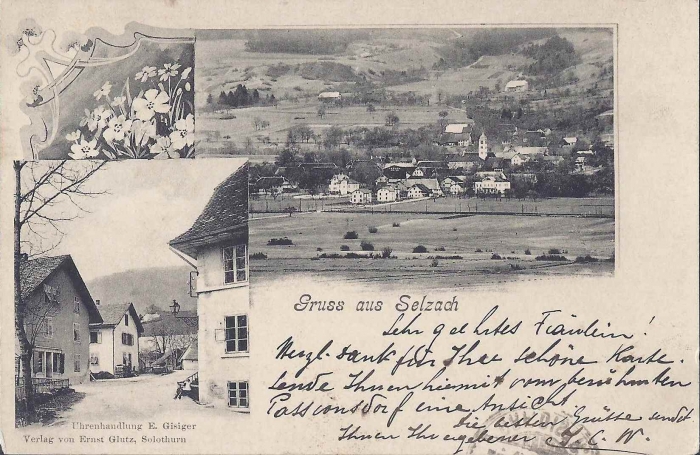 Gruss aus Selzach
Sehr geehrtes Fräulein!
Herzl. Dank für Ihre schöne Karte.
sende Ihnen hiermit vom berühmten
Passionsdorf eine Ansicht.
die besten Grüsse sendet
Ihnen Ihr ergebener J. C. W.
Uhrenhandlung E. Gisiger
Verlag von Ernst Glutz, Solothurn